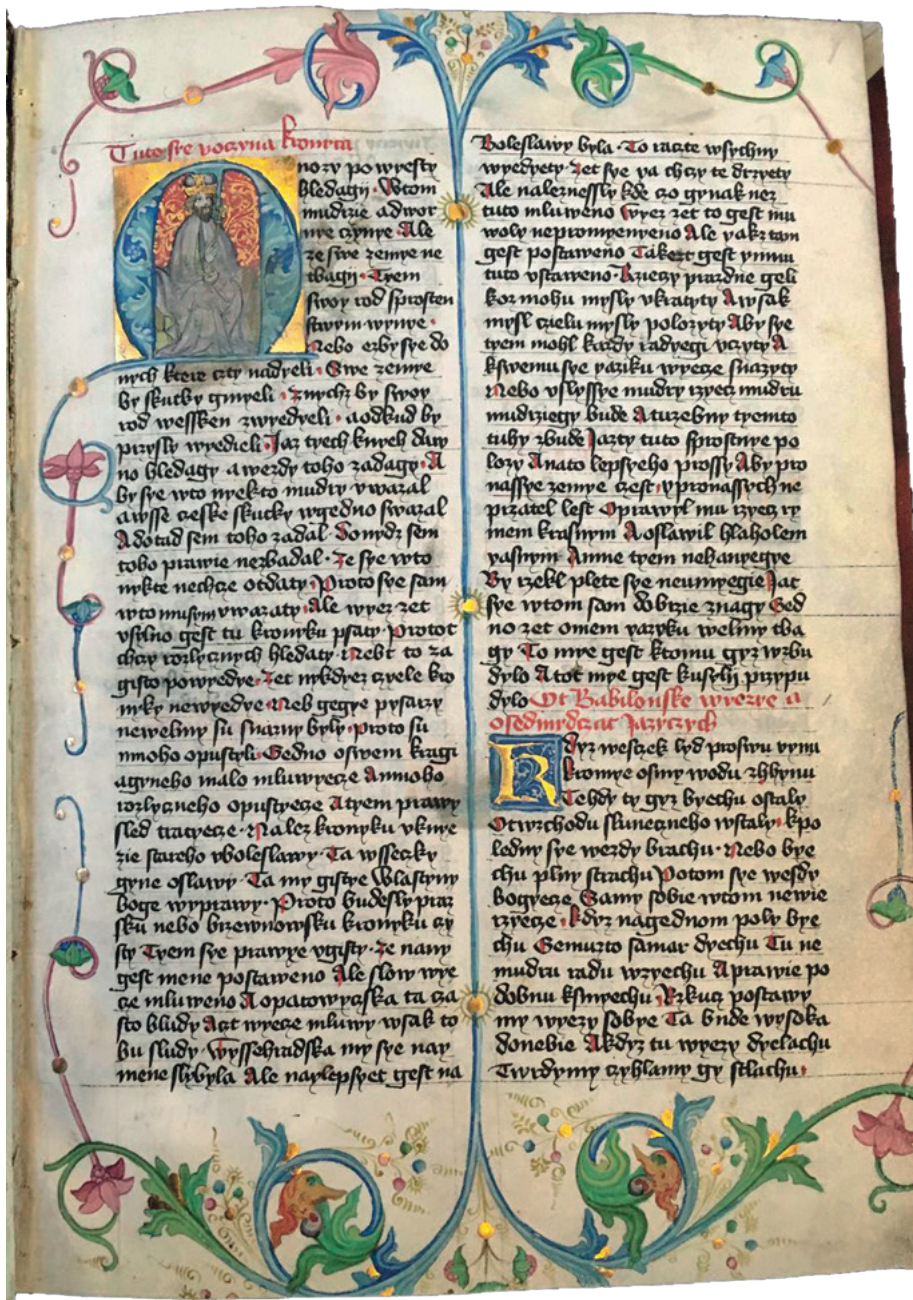 Tuto sye poczyna kronyca
nozy powyesty
hledagij. Wtom
mudrzie a dwor
nye czynye. Ale
ze swe zemye ne
tbagij. Tyem
swoy rod sprosten
stwym wynye.
Nebo erby sye do
nych ktere czty nadyeli. Swe zemye
by skutky gmyeli. znychz by swoy
rod wessken zwyedyeli. a odkud by
przyssly wyedieli. Jaz tyech knyeh daw
no hledagy a werdy toho zadagy. A
by sye wto nyekto mudry vwazal
a wsse czeske skutky wgedno swazal
A dotad sem toho zadal. Donydz sem
toho prawie nezbadal. Ze sye wto
nykte nechcze otdaty. Proto sye sam
wto musym vwazaty. Ale wyez zet
vsylno gest tu kronyku psaty. Protot
chczy rozlycznych hledaty. Nebt to za
gisto powyedye. Zet nykdyez czyele kro
nyky newyedye. Neb gegye pysarzy
newelmy su snazny byly. Proto su
mnoho opustyli. Gedno oswem kragi
a gyneho malo mluwyecze. A mnoho
rozlyczneho opustyecze. A tyem prawy
sled tratyecze. Nalez kronyku v knye
zie stareho v boleslawy. Ta wsseczky
gyne oslawy. Ta my gistye wlastyny
boge wyprawy. Proto budesly praz
sku nebo brzewnowsku kronyku czy
sty Tyem sye prawye vgisty. Ze nany
gest mene postaweno Ale slow wye
cze mluweno A opatowyczska ta cza
sto bludy Aczt wyecze mluwy wsak to
bu sludy. Wyssehradska my sye nay
mene slybyla Ale naylepssyet gest na
Boleslawy byla. To raczte wsychny
wyedyety. Zet sye ya chczy te drzyety
Ale naleznessly kde czo gynak nez
tuto mluweno Wyez zet to gest mu
woly nepromyenyeno Ale yakz tam
gest postaweno Takezt gest ynmu
tuto vstaweno. Rzieczy prazdne geli
koz mohu mysly vkratyty A wsak
mysl czielu mysly polozyty Aby sye
tyem mohl kazdy radyegi vczyty A
kswemu sye yaziku wyecze snazyty
Nebo vslyssye mudry rzyecz mudru
mudrziegy bude A tuzebny tyemto
tuhy zbude Jazt y tuto sprostnye po
lozy A nato lepssyeho prossy Aby pro
nassye zemye czest. y pronassych ne
przatel lest Oprawyl mu rzyecz ry
mem krasnym A oslawil hlaholem
yasnym A mne tyem nehanyegye
By rzekl plete sye neumyegie Jat
sye wtom sam dobrzie znagy Ged
no zet omem yazyku welmy tba
gy To mye gest ktomu gyz wzbu
dylo A tot mye gest kusyly przypu
dylo Ot Babilonske wyezye a
osedmydczat Jazyczych
Kdyz weszek lyd proswu vynu
kromye osmy wodu zhbynu
Tehdy ty gyz byechu ostaly
Otwzchodu slunecznego wstaly. kpo
ledny sye werdy brachu. Nebo bye
chu plny strachu Potom sye wesdy
bogyecze Samy sobie wtom newie
rzyecze. kdyz nagednom poly bye
chu Gemuzto sanar dyechu Tu ne
mudru radu wzyechu A prawie po
dobnu ksmyechu Rzkucz postawy
my wyezy sobye Ta bude wysoka
donebie A kdyz tu wyezy dyelachu
Twrdymy czyhlamy gy stlachu.